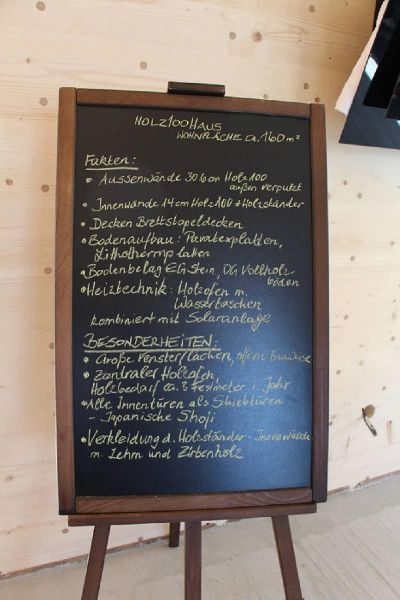 HOLZ100HAUS
WOHNFLÄCHE ca. 160 m²
Fakten:
• Aussenwände 30,6 cm Holz100
außen verputzt
• Innenwände 14 cm Holz100 + Holzständer
• Decken Brettstapeldecken
• Bodenaufbau: Pavatexplatten,
Lithothermplatten
• Bodenbelag EG Stein, OG Vollholz-
böden
• Heiztechnik: Holzofen m.
Wassertaschen
kombiniert mit Solaranlage
BESONDERHEITEN:
• Große Fensterflächen, offene Bauweise
• Zentraler Holzofen,
Holzbedarf ca. 8 Festmeter i. Jahr
• Alle Innentüren als Schiebetüren
- Japanische Shoji
• Verkleidung d. Holzständer-Innenwände
m. Lehm und Zirbenholz